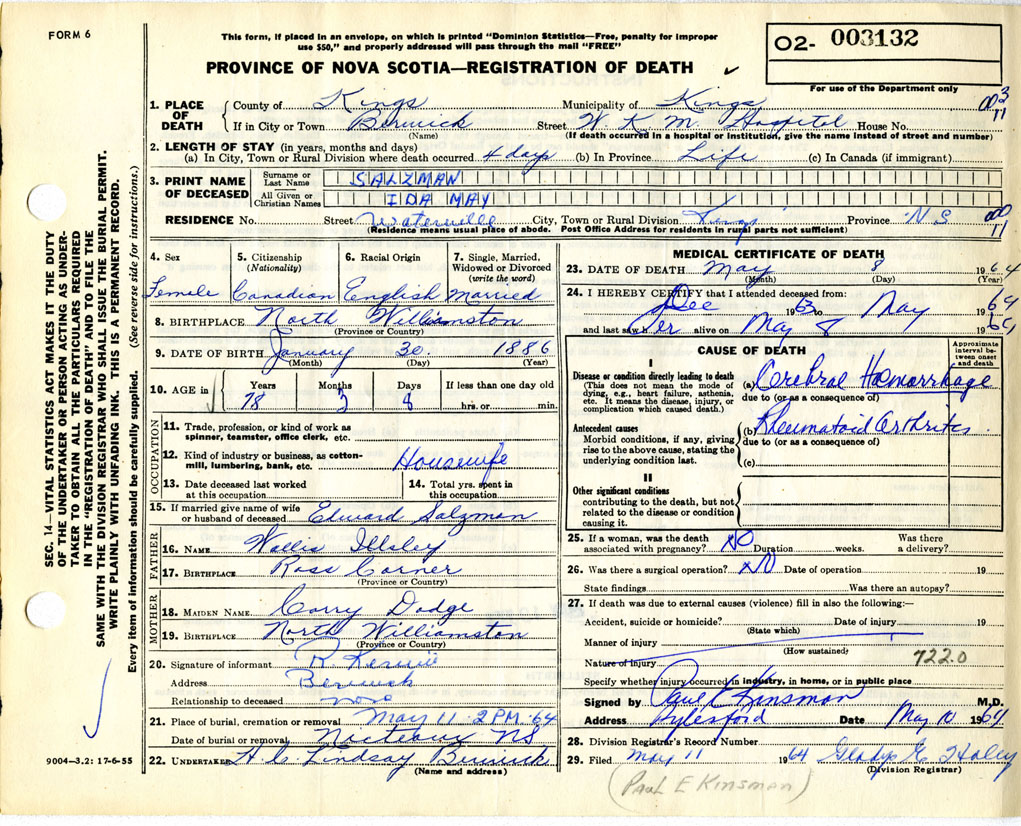 FORM 6
This form, if placed in an envelope, on which is printed "Dominion Statistics—Free, penalty for improper
use $50," and properly addressed will pass through the mail "FREE"
O2- 003132
For use of the Department only
PROVINCE OF NOVA SCOTIA—REGISTRATION OF DEATH
1. PLACE OF DEATH County of Kings Municipality of Kings 003
11
If in City or Town Berwick Street W. K. M. Hospital House No.
(Name) (If death occurred in a hospital or institution, give the name instead of street and number)
2. LENGTH OF STAY (in years, months and days)
(a) In City, Town or Rural Division where death occurred 4 days (b) In Province Life (c) In Canada (if immigrant)
3. PRINT NAME OF DECEASED Surname or Last Name SALZMAN
All Given or Christian Names IDA MAY
RESIDENCE No. Street Waterville City, Town or Rural Division Kings Province N S 000
11
(Residence means usual place of abode. Post Office Address for residents in rural parts not sufficient)
4. Sex 5. Citizenship (Nationality) 6. Racial Origin 7. Single, Married, Widowed or Divorced (write the word)
Female Canadian English Married
8. BIRTHPLACE North Williamston
(Province or Country)
9. DATE OF BIRTH January 30 1886
(Month) (Day) (Year)
10. AGE in Years Months Days If less than one day old
78 3 8 hrs. or min.
OCCUPATION
11. Trade, profession, or kind of work as
spinner, teamster, office clerk, etc.
12. Kind of industry or business, as cotton-
mill, lumbering, bank, etc. Housewife
13. Date deceased last worked
at this occupation
14. Total yrs. spent in
this occupation
15. If married give name of wife
or husband of deceased Edward Salzman
FATHER
16. NAME Wallis Illsley
17. BIRTHPLACE Ross Corner
(Province or Country)
MOTHER
18. MAIDEN NAME Corry Dodge
19. BIRTHPLACE North Williamston
(Province or Country)
20. Signature of informant R.
Address Berwick
Relationship to deceased none
21. Place of burial, cremation or removal May 11 - 2 PM - 64
Date of burial or removal Nictaux NS
22. UNDERTAKER H. C. Lindsay Berwick
(Name and address)
MEDICAL CERTIFICATE OF DEATH
23. DATE OF DEATH May 8 1964
(Month) (Day) (Year)
24. I HEREBY CERTIFY that I attended deceased from:
Dec 1963 to May 1964
and last saw her alive on May 8 1964
CAUSE OF DEATH
Approximate interval between onset and death
I
Disease or condition directly leading to death
(This does not mean the mode of
dying, e.g., heart failure, asthenia,
etc. It means the disease, injury, or
complication which caused death.)
(a) Cerebral Haemorrhage
due to (or as a consequence of)
Antecedent causes
Morbid conditions, if any, giving
rise to the above cause, stating the
underlying condition last.
(b) Rheumatoid Arthritis
due to (or as a consequence of)
(c)
II
Other significant conditions
contributing to the death, but not
related to the disease or condition
causing it.
25. If a woman, was the death
associated with pregnancy? NO Duration weeks. Was there
a delivery?
26. Was there a surgical operation? NO Date of operation 19
State findings Was there an autopsy?
27. If death was due to external causes (violence) fill in also the following:—
Accident, suicide or homicide? Date of injury 19
(State which)
Manner of injury
(How sustained)
Nature of injury 722.0
Specify whether injury occurred in industry, in home, or in public place
Signed by Paul E Kinsman M.D.
Address Aylesford Date May 10 1964
28. Division Registrar's Record Number
29. Filed May 11 1964 Gladys E. Haley
(Division Registrar)
(Paul E Kinsman)
9004—3.2: 17-6-55
SEC. 14—VITAL STATISTICS ACT MAKES IT THE DUTY
OF THE UNDERTAKER OR PERSON ACTING AS UNDER-
TAKER TO OBTAIN ALL THE PARTICULARS REQUIRED
IN THE "REGISTRATION OF DEATH" AND TO FILE THE
SAME WITH THE DIVISION REGISTRAR WHO SHALL ISSUE THE BURIAL PERMIT.
WRITE PLAINLY WITH UNFADING INK. THIS IS A PERMANENT RECORD.
Every item of information should be carefully supplied. (See reverse side for instructions.)